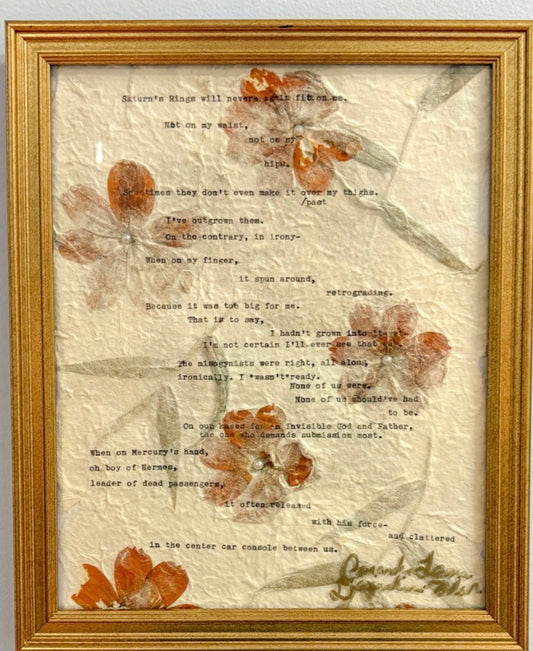 Saturn's Rings will nevera again fit on me.
Not on my waist,
not on my
hips.
Sometimes they don't even make it over my thighs.
/past
I've outgrown them.
On the contrary, in irony-
When on my finger,
it spun around,
retrograding.
Because it was too big for me.
That is to say,
I hadn't grown into it
I'm not certain I'll ever see that
The misogynists were right, all along,
ironically. I *wasn't*ready.
None of us were.
None of us should've had
to be.
On our knees for an invisible God and Father,
the one who demands submission most.
When on Mercury's hand,
oh boy of Hermes,
leader of dead passengers,
it often released
with his force-
and clattered
in the center car console between us.